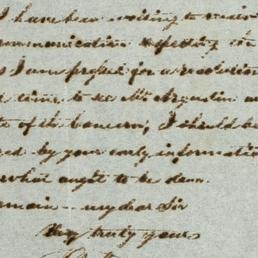 I have been waiting to receive
communication respecting the
as I am pressed for a resolution
come to see Mr
of the concern, I should be
by your early information
what ought to be done.
remain — my dear Sir
Very truly yours